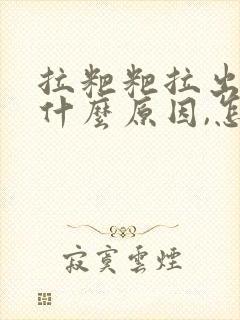 拉粑粑拉出
什麼原因,怎
寂寞雲煙